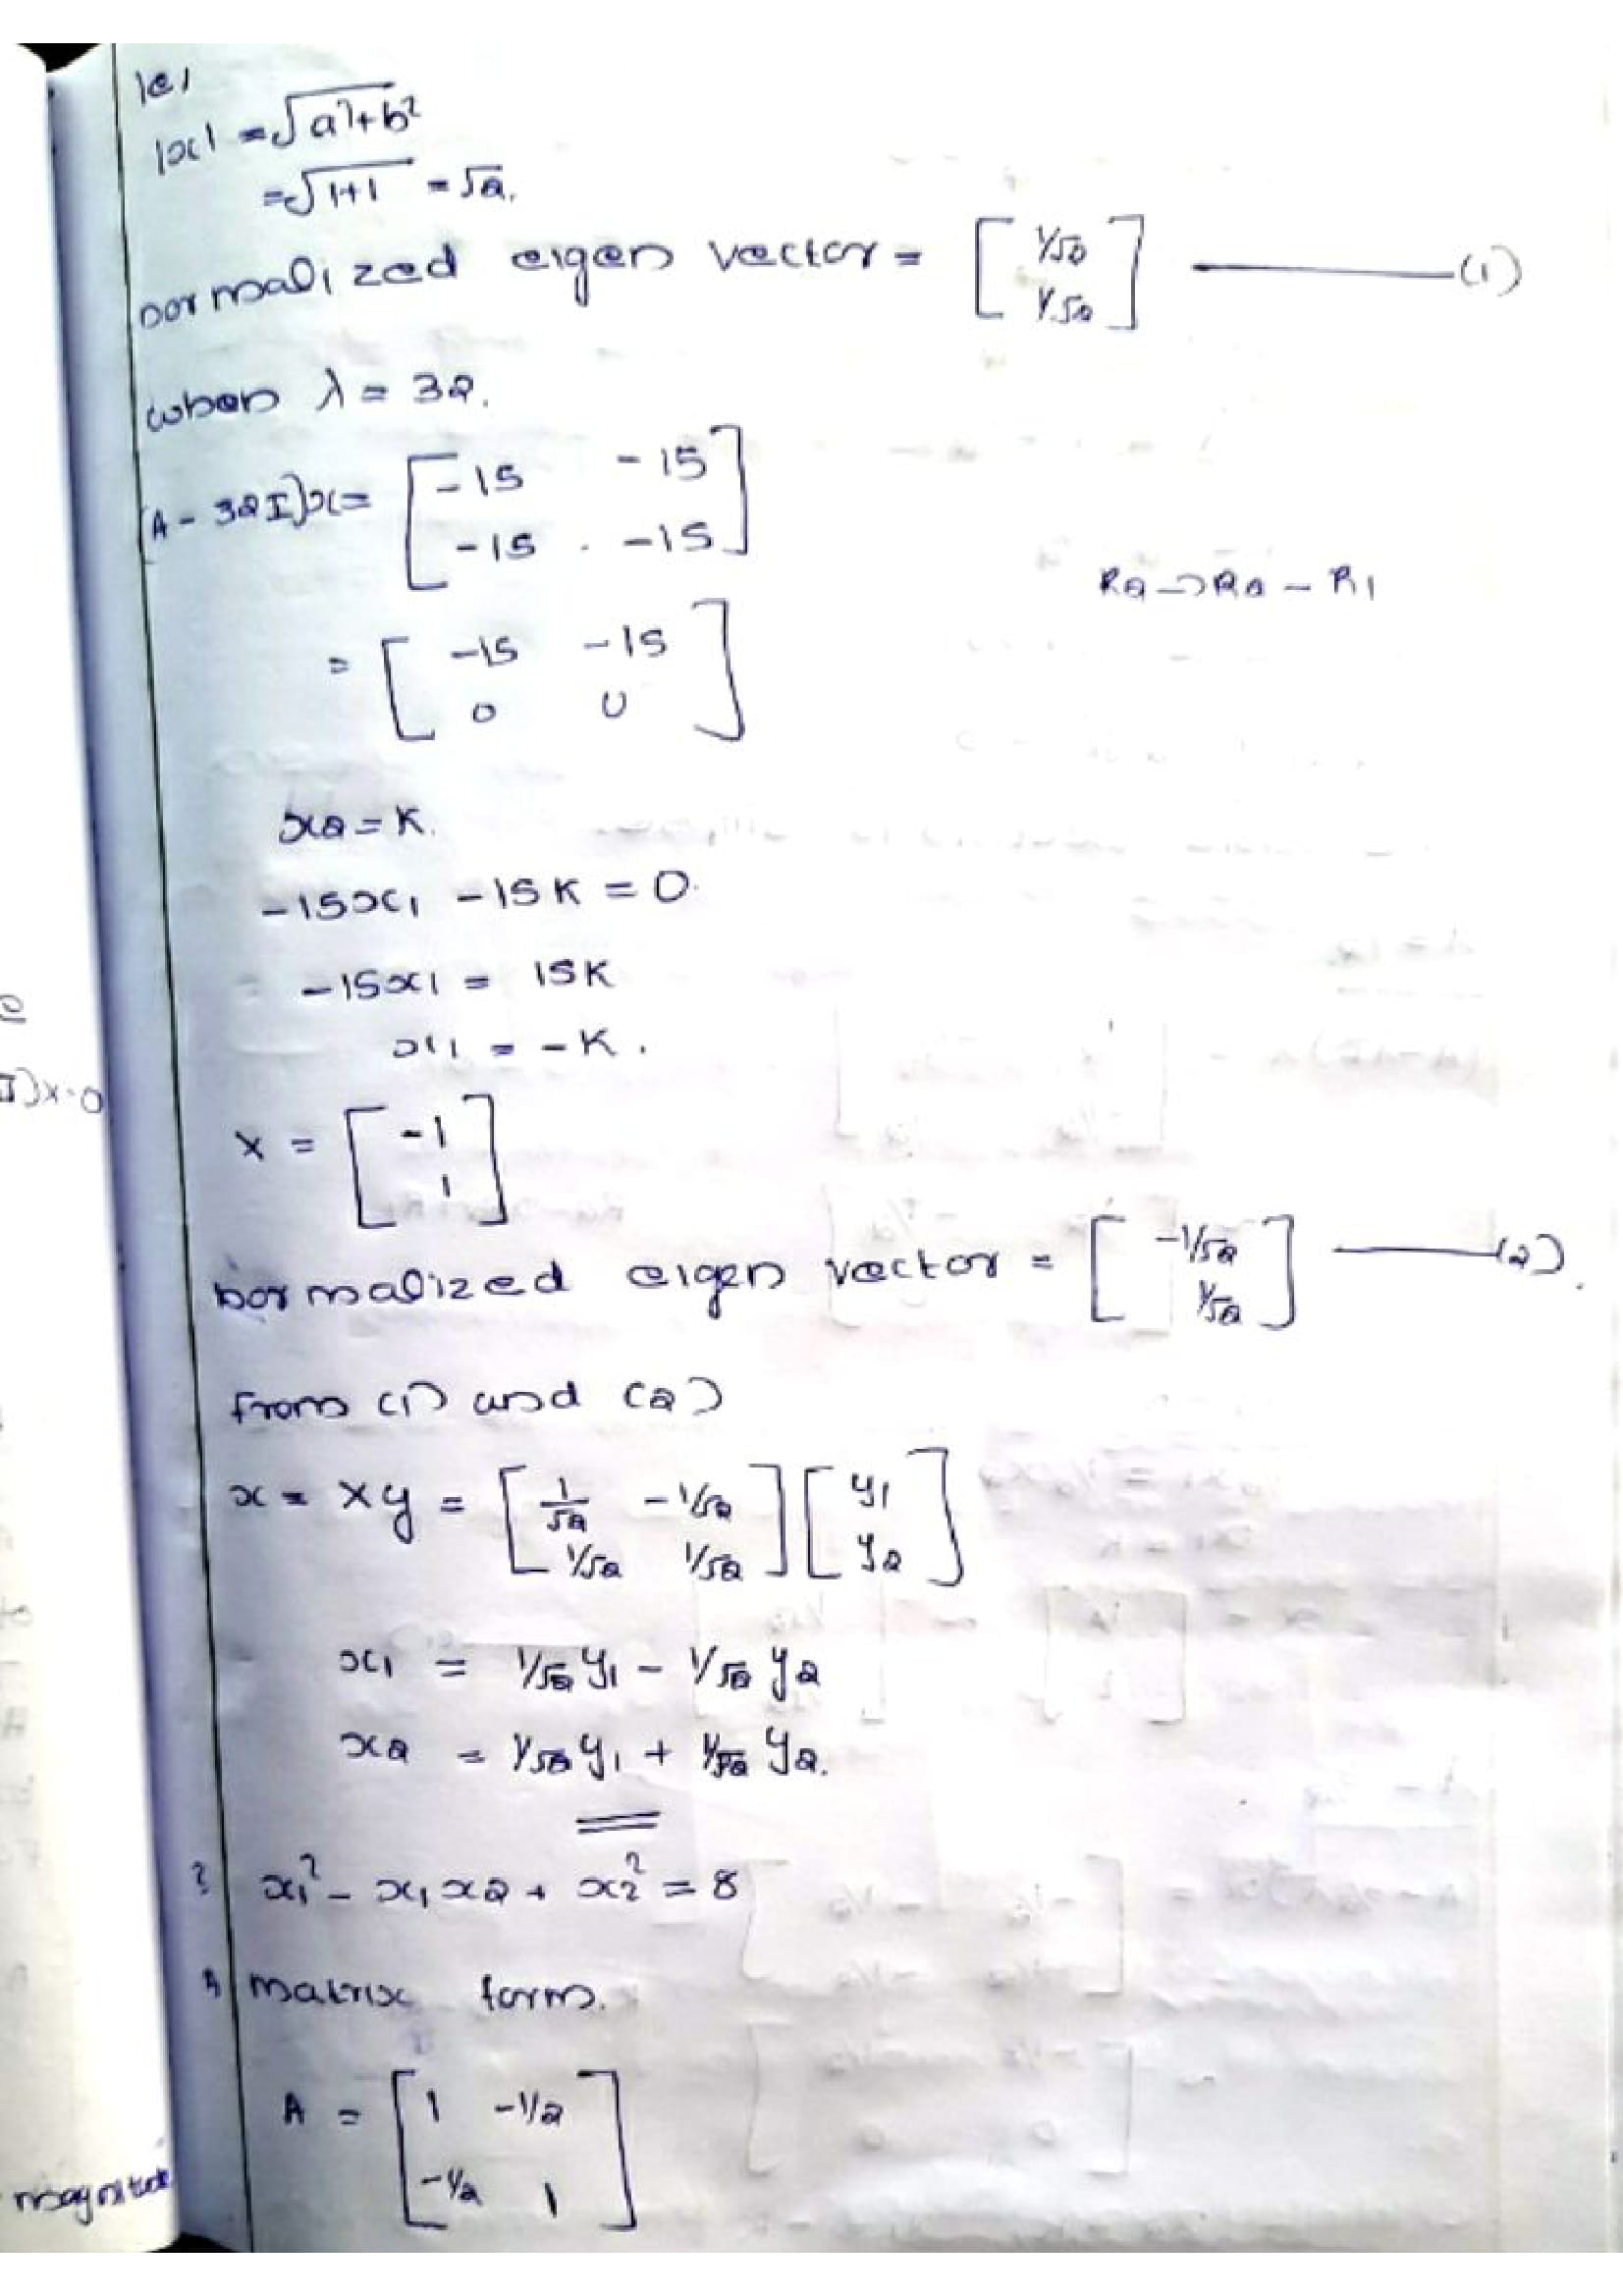 ie,
|x| = √a²+b²
= √1+1 = √2.
normalized eigen vector = [ 1/√2 ——— (1)
1/√2 ]
when λ = 32.
[A - 32I]x = [ -15 -15
-15 -15 ]
R2 → R2 - R1
= [ -15 -15
0 0 ]
x2 = K.
-15x1 - 15K = 0.
-15x1 = 15K
x1 = -K.
I)x=0
X = [ -1
1 ]
normalized eigen vector = [ -1/√2 ——— (2).
1/√2 ]
from (1) and (2)
x = Xy = [ 1/√2 -1/√2 ] [ y1
1/√2 1/√2 ] y2 ]
x1 = 1/√2 y1 - 1/√2 y2
x2 = 1/√2 y1 + 1/√2 y2.
? x1² - x1x2 + x2² = 8
A matrix form.
A = [ 1 -1/2
-1/2 1 ]
magnitude